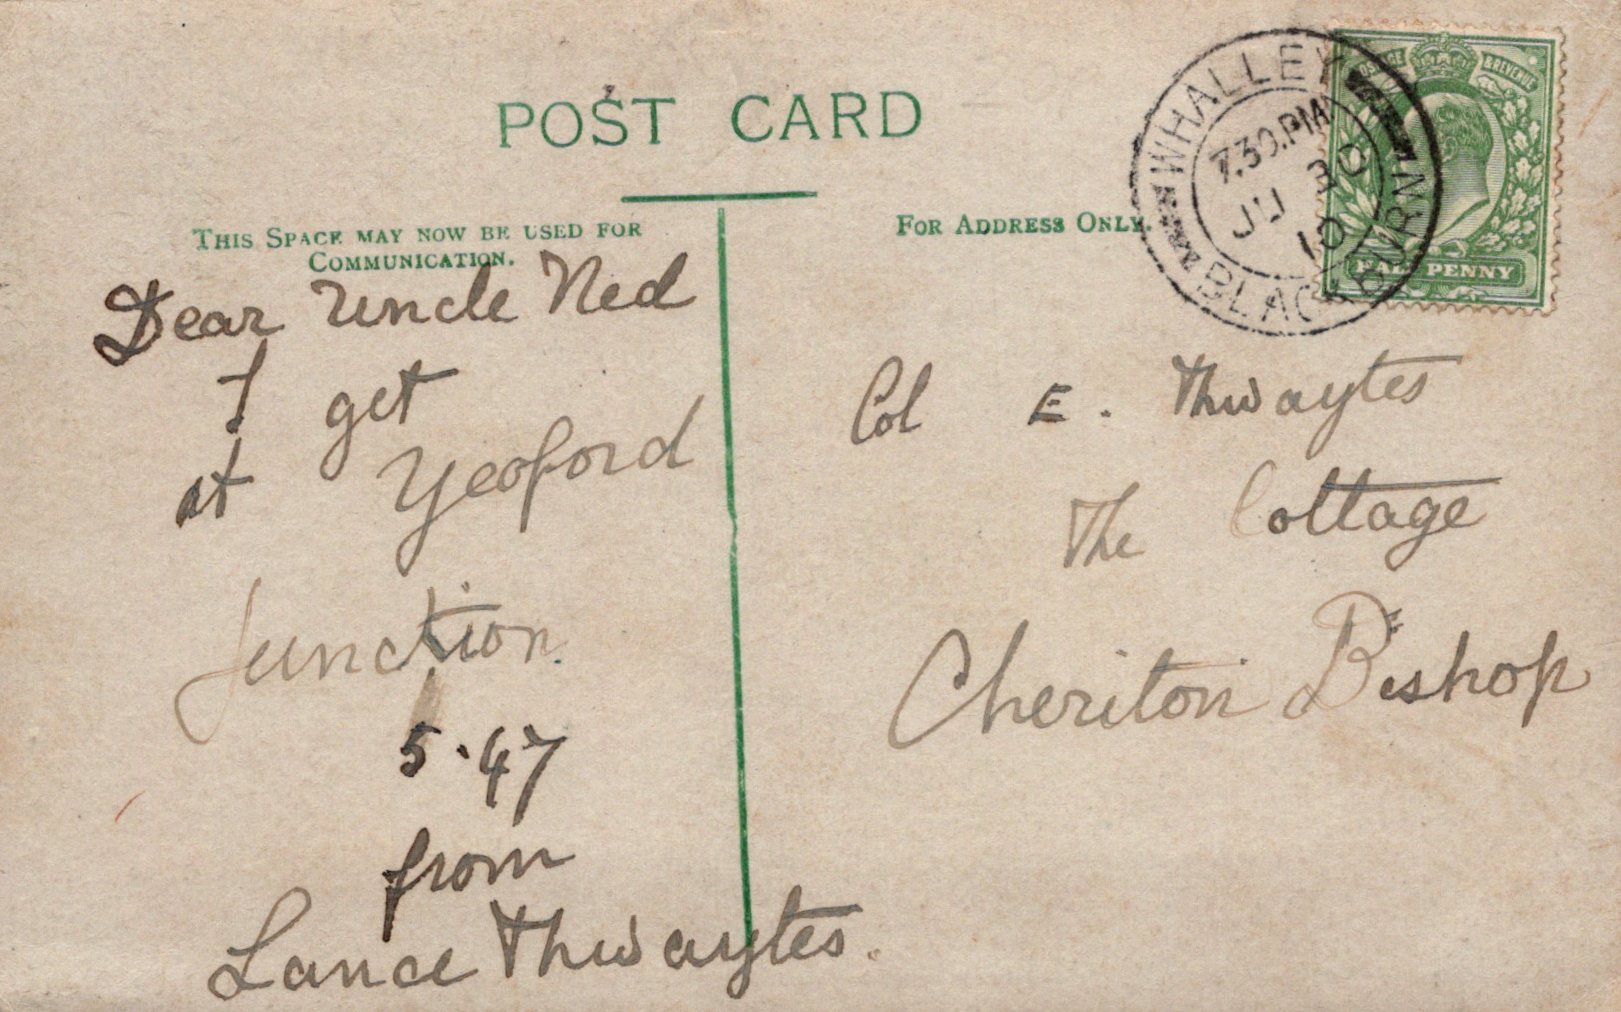 POST CARD
THIS SPACE MAY NOW BE USED FOR
COMMUNICATION.
FOR ADDRESS ONLY.
WHALLEY
7.30.PM
30
JU
10
BLACKBURN
POSTAGE & REVENUE
HALFPENNY
Dear Uncle Ned
I get
at Yeoford
Junction.
5.47
from
Lance Thwaytes.
Col E. Thwaytes
The Cottage
Cheriton Bishop